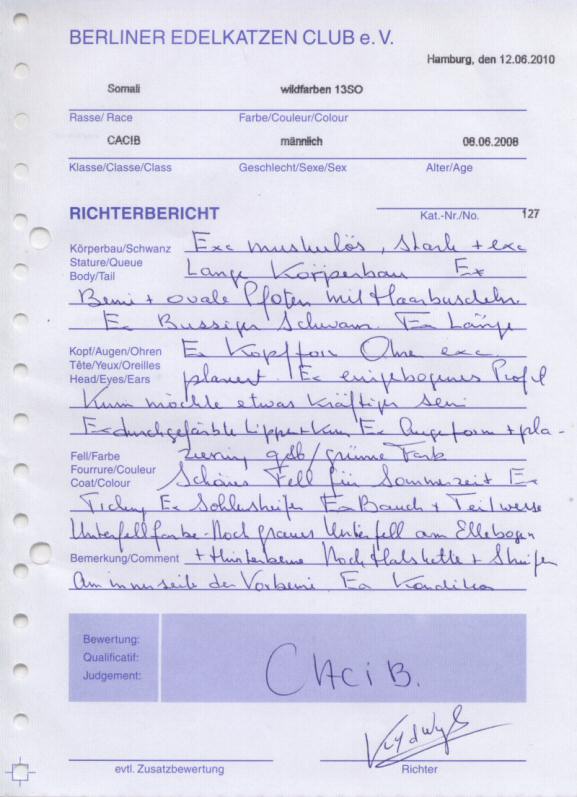 BERLINER EDELKATZEN CLUB e. V.
Hamburg, den 12.06.2010
Somali wildfarben 13SO
Rasse/ Race Farbe/Couleur/Colour
CACIB männlich 08.06.2008
Klasse/Classe/Class Geschlecht/Sexe/Sex Alter/Age
RICHTERBERICHT Kat.-Nr./No. 127
Körperbau/Schwanz Exc muskulös, stark + exc
Stature/Queue
Body/Tail Lange Körperbau Ex
Beine + ovale Pfoten mit Haarbuscheln
Ex Bussiger Schwanz. Ex Länge
Kopf/Augen/Ohren Ex Kopfform Ohre exc.
Tête/Yeux/Oreilles
Head/Eyes/Ears plaziert. Ex eingebogenes Profil
Kinn möchte etwas kräftiger sein
Ex durchgefärbte Lippe + Kinn Ex Augeform + pla-
Fell/Farbe zierung gelb/grüne Farb
Fourrure/Couleur
Coat/Colour Schönes Fell für Sommerzeit Ex
Ticking Ex Sohlestreifen Ex Bauch + Teilweise
Unterfellfarbe - Noch graues Unterfell am Ellebogen
Bemerkung/Comment + Hinterbeine Noch Halskette + Streifen
Am innenseite der Vorbeine. Ex Kondition
Bewertung:
Qualificatif:
Judgement:
CACIB.
evtl. Zusatzbewertung Richter